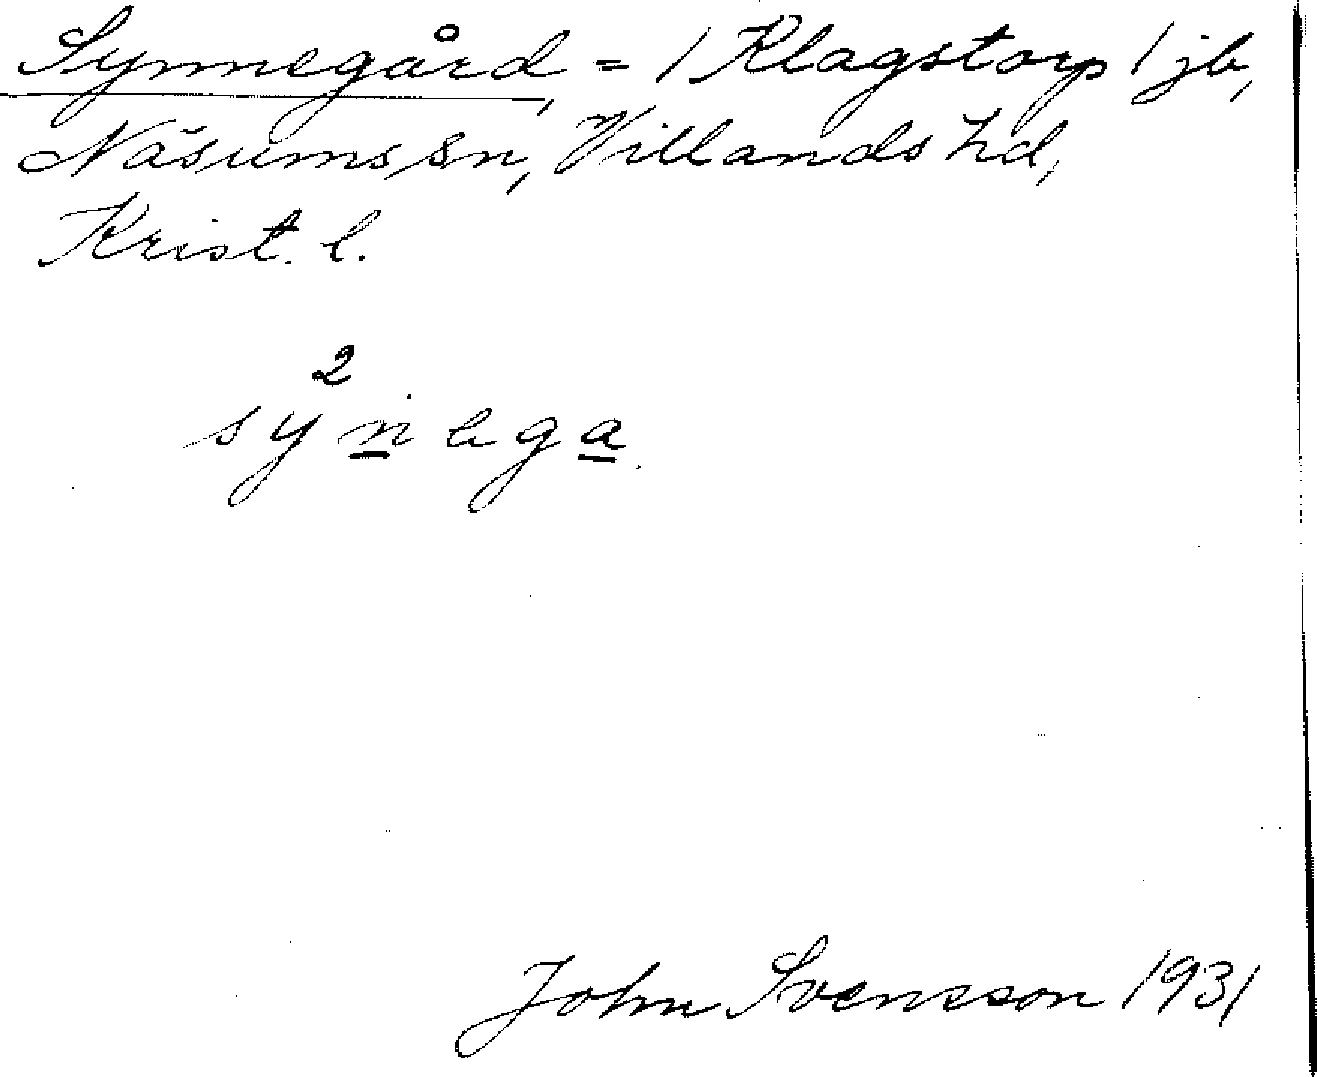 Synnegård, = 1 Klagstorp 1 jb,
Näsums sn, Villands hd,
Krist. l.
2
synega
John Svensson 1931